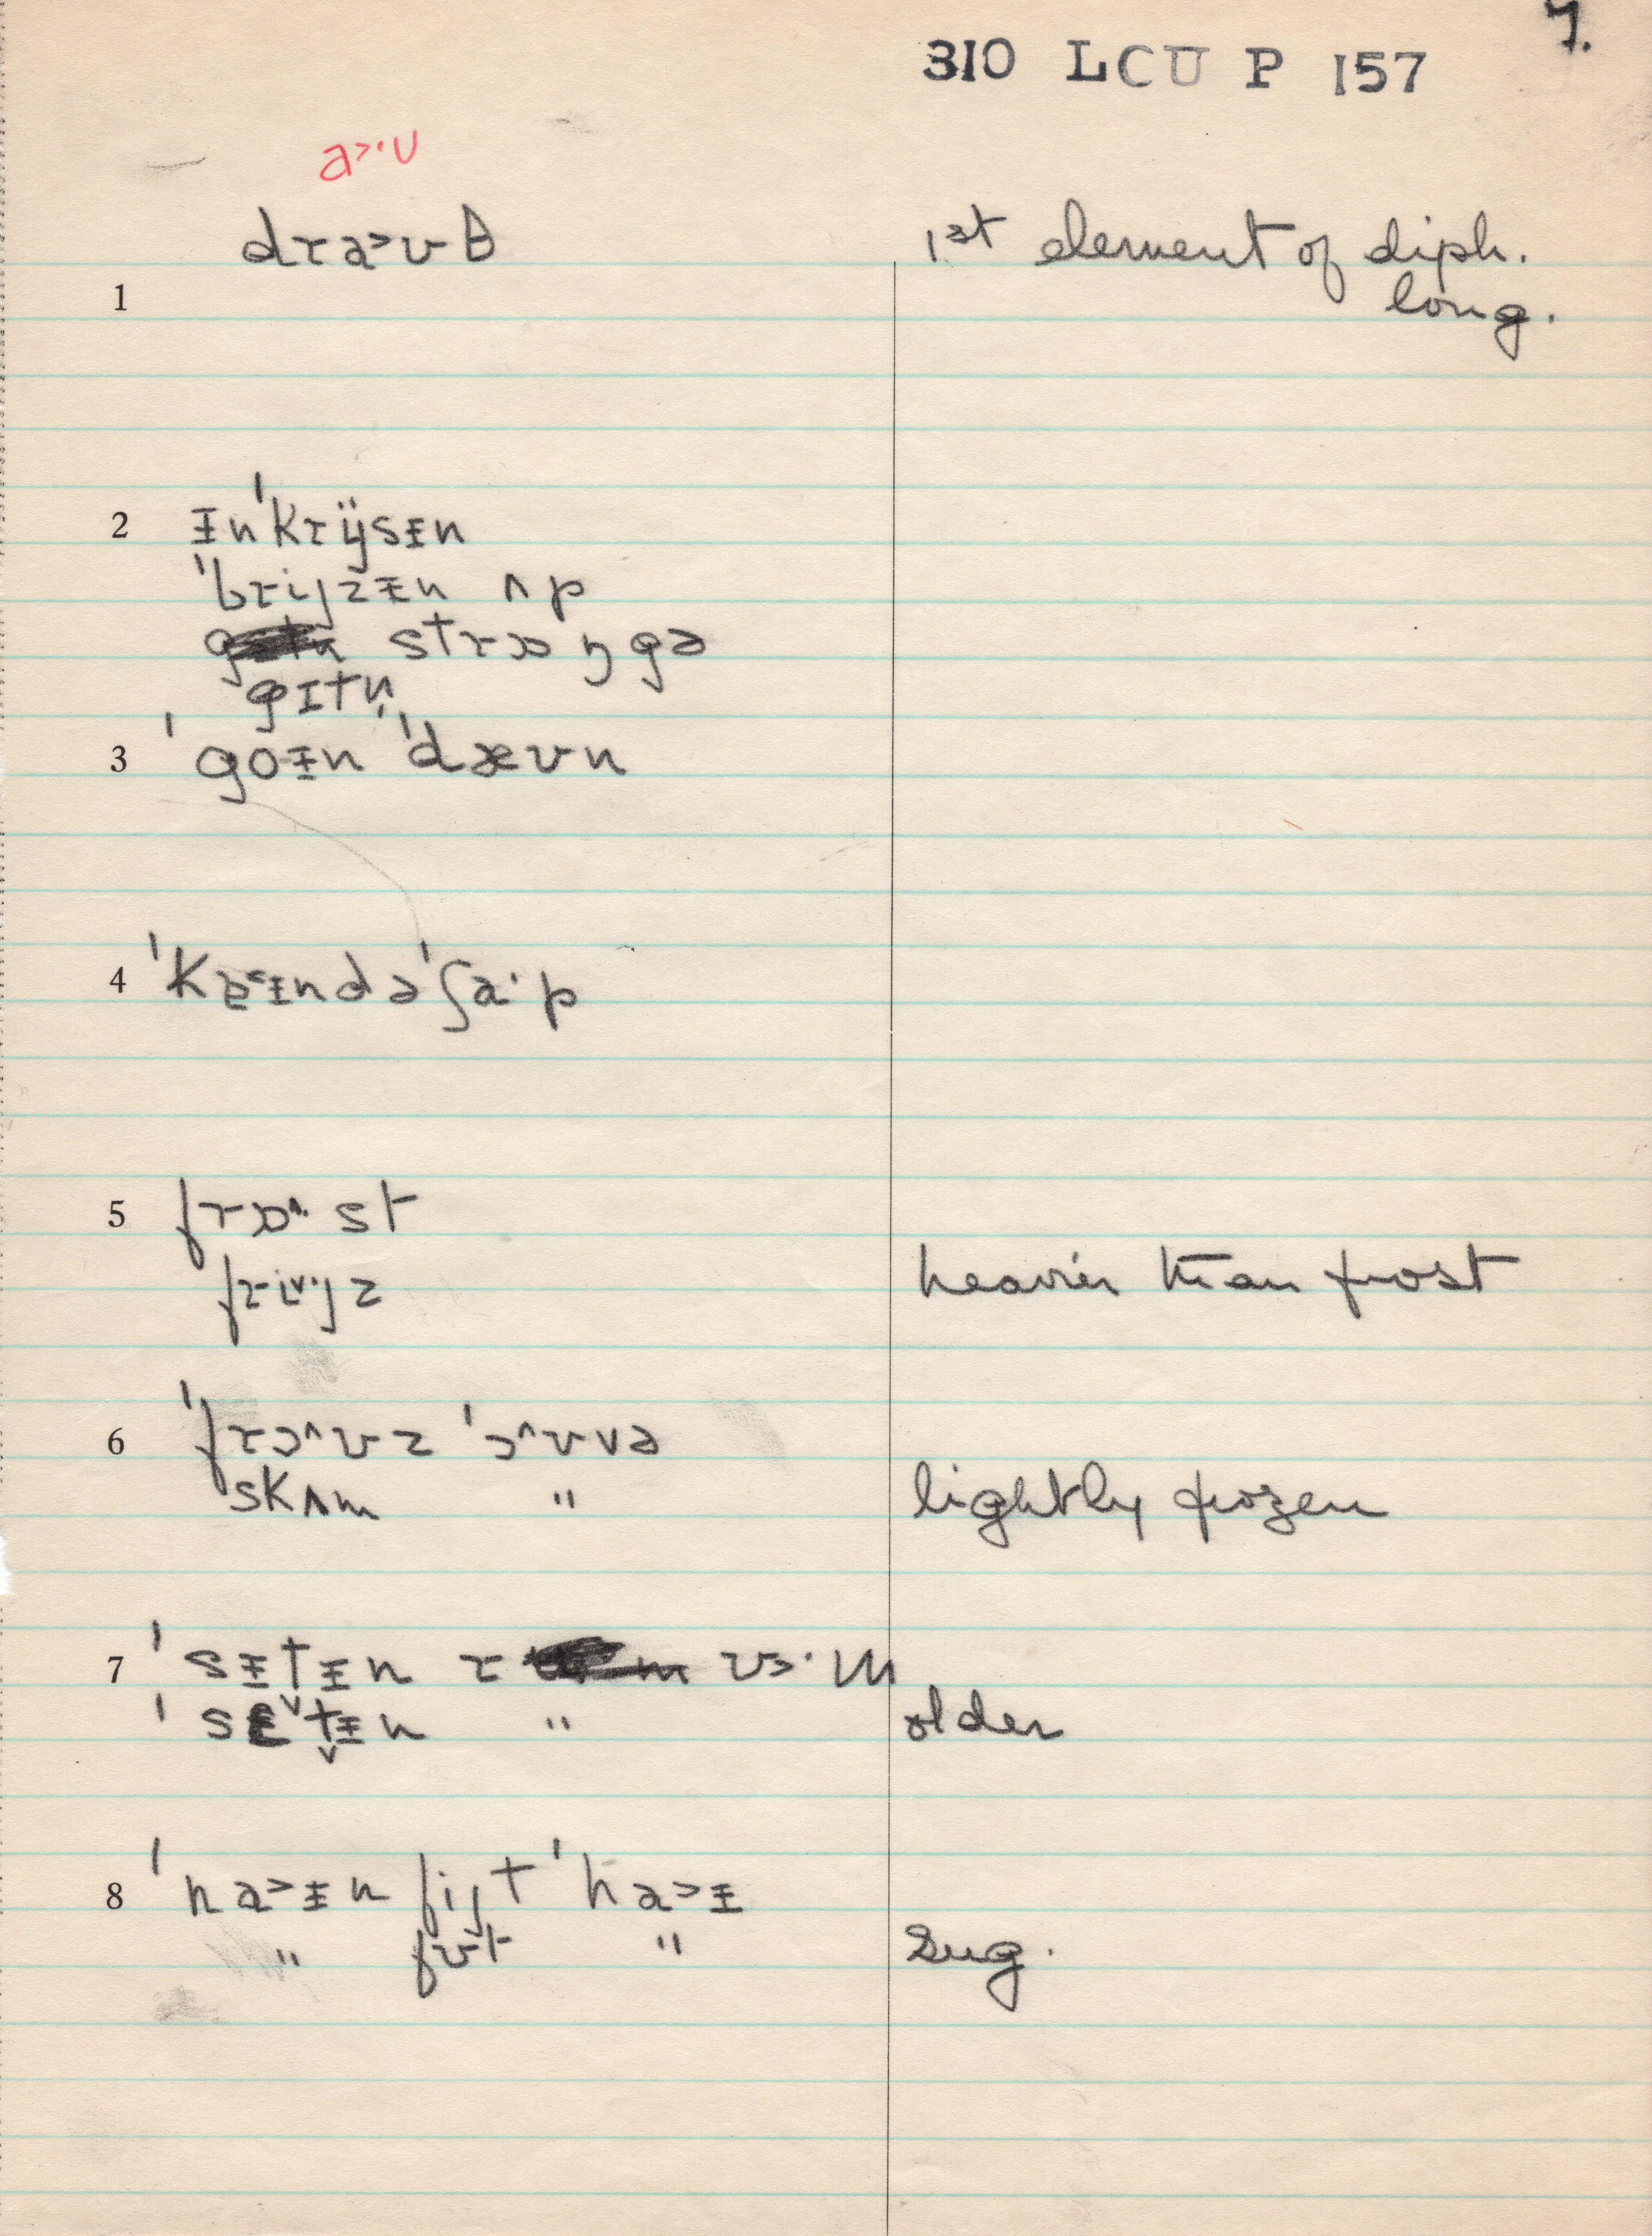 7.
310 LCU P 157
a>·ʊ
dɾa>ʊθ 1st element of diph.
1 long.
2 ɪ̵n'krijsɪ̵n
'brijzɪ̵n ʌp
strɒŋgə
gɪtn̩
3 'goɪ̵n 'dæʊn
4 'kɐ<ɪ̵ndə 'ʃa·p
5 frɒ^·st
fri˅·jz heavier than frost
6 'frɔ^ʊz 'ɔ^ʊvə
skʌm " lightly frozen
7 'sɪ̵tɪ̵n ɾ ʊ>·m
'sɛ˅t̬ɪ̵n " older
8 'ha>ɪ̵n fijt 'ha>ɪ̵
" fʊt " sug.